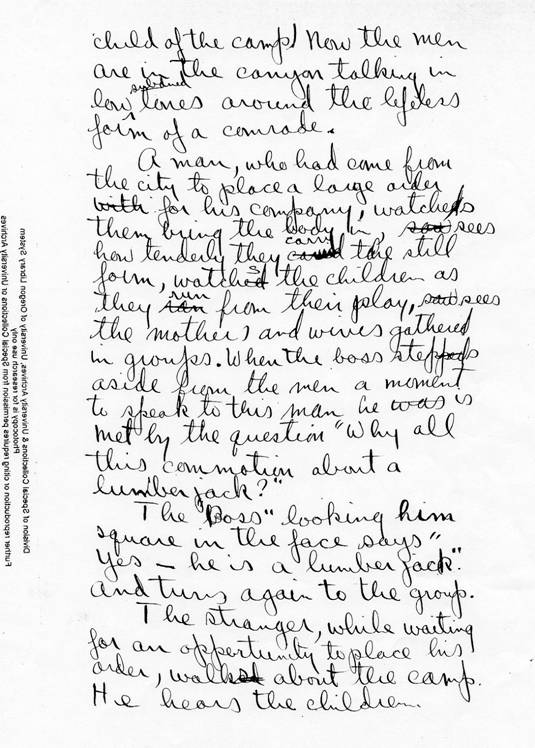 child of the camp! Now the men
are in the canyon talking in
subdued
low tones around the lifeless
form of a comrade.
A man, who had come from
the city to place a large order
with for his company, watches
them bring the body in, saw sees
how tenderly they carry the still
form, watches the children as
they ran run from their play, saw sees
the mothers and wives gathered
in groups. When the boss steps
aside from the men a moment
to speak to this man he was is
met by the question "Why all
this commotion about a
lumberjack?"
The "Boss" looking him
square in the face says "
Yes – he is a lumber jack".
and turns again to the group.
The stranger, while waiting
for an opportunity to place his
order, walks about the camp.
He hears the children
Division of Special Collections & University Archives, University of Oregon Library System
Photocopy is for research use only.
Further reproduction or citing requires permission from Special Collections or University Archives